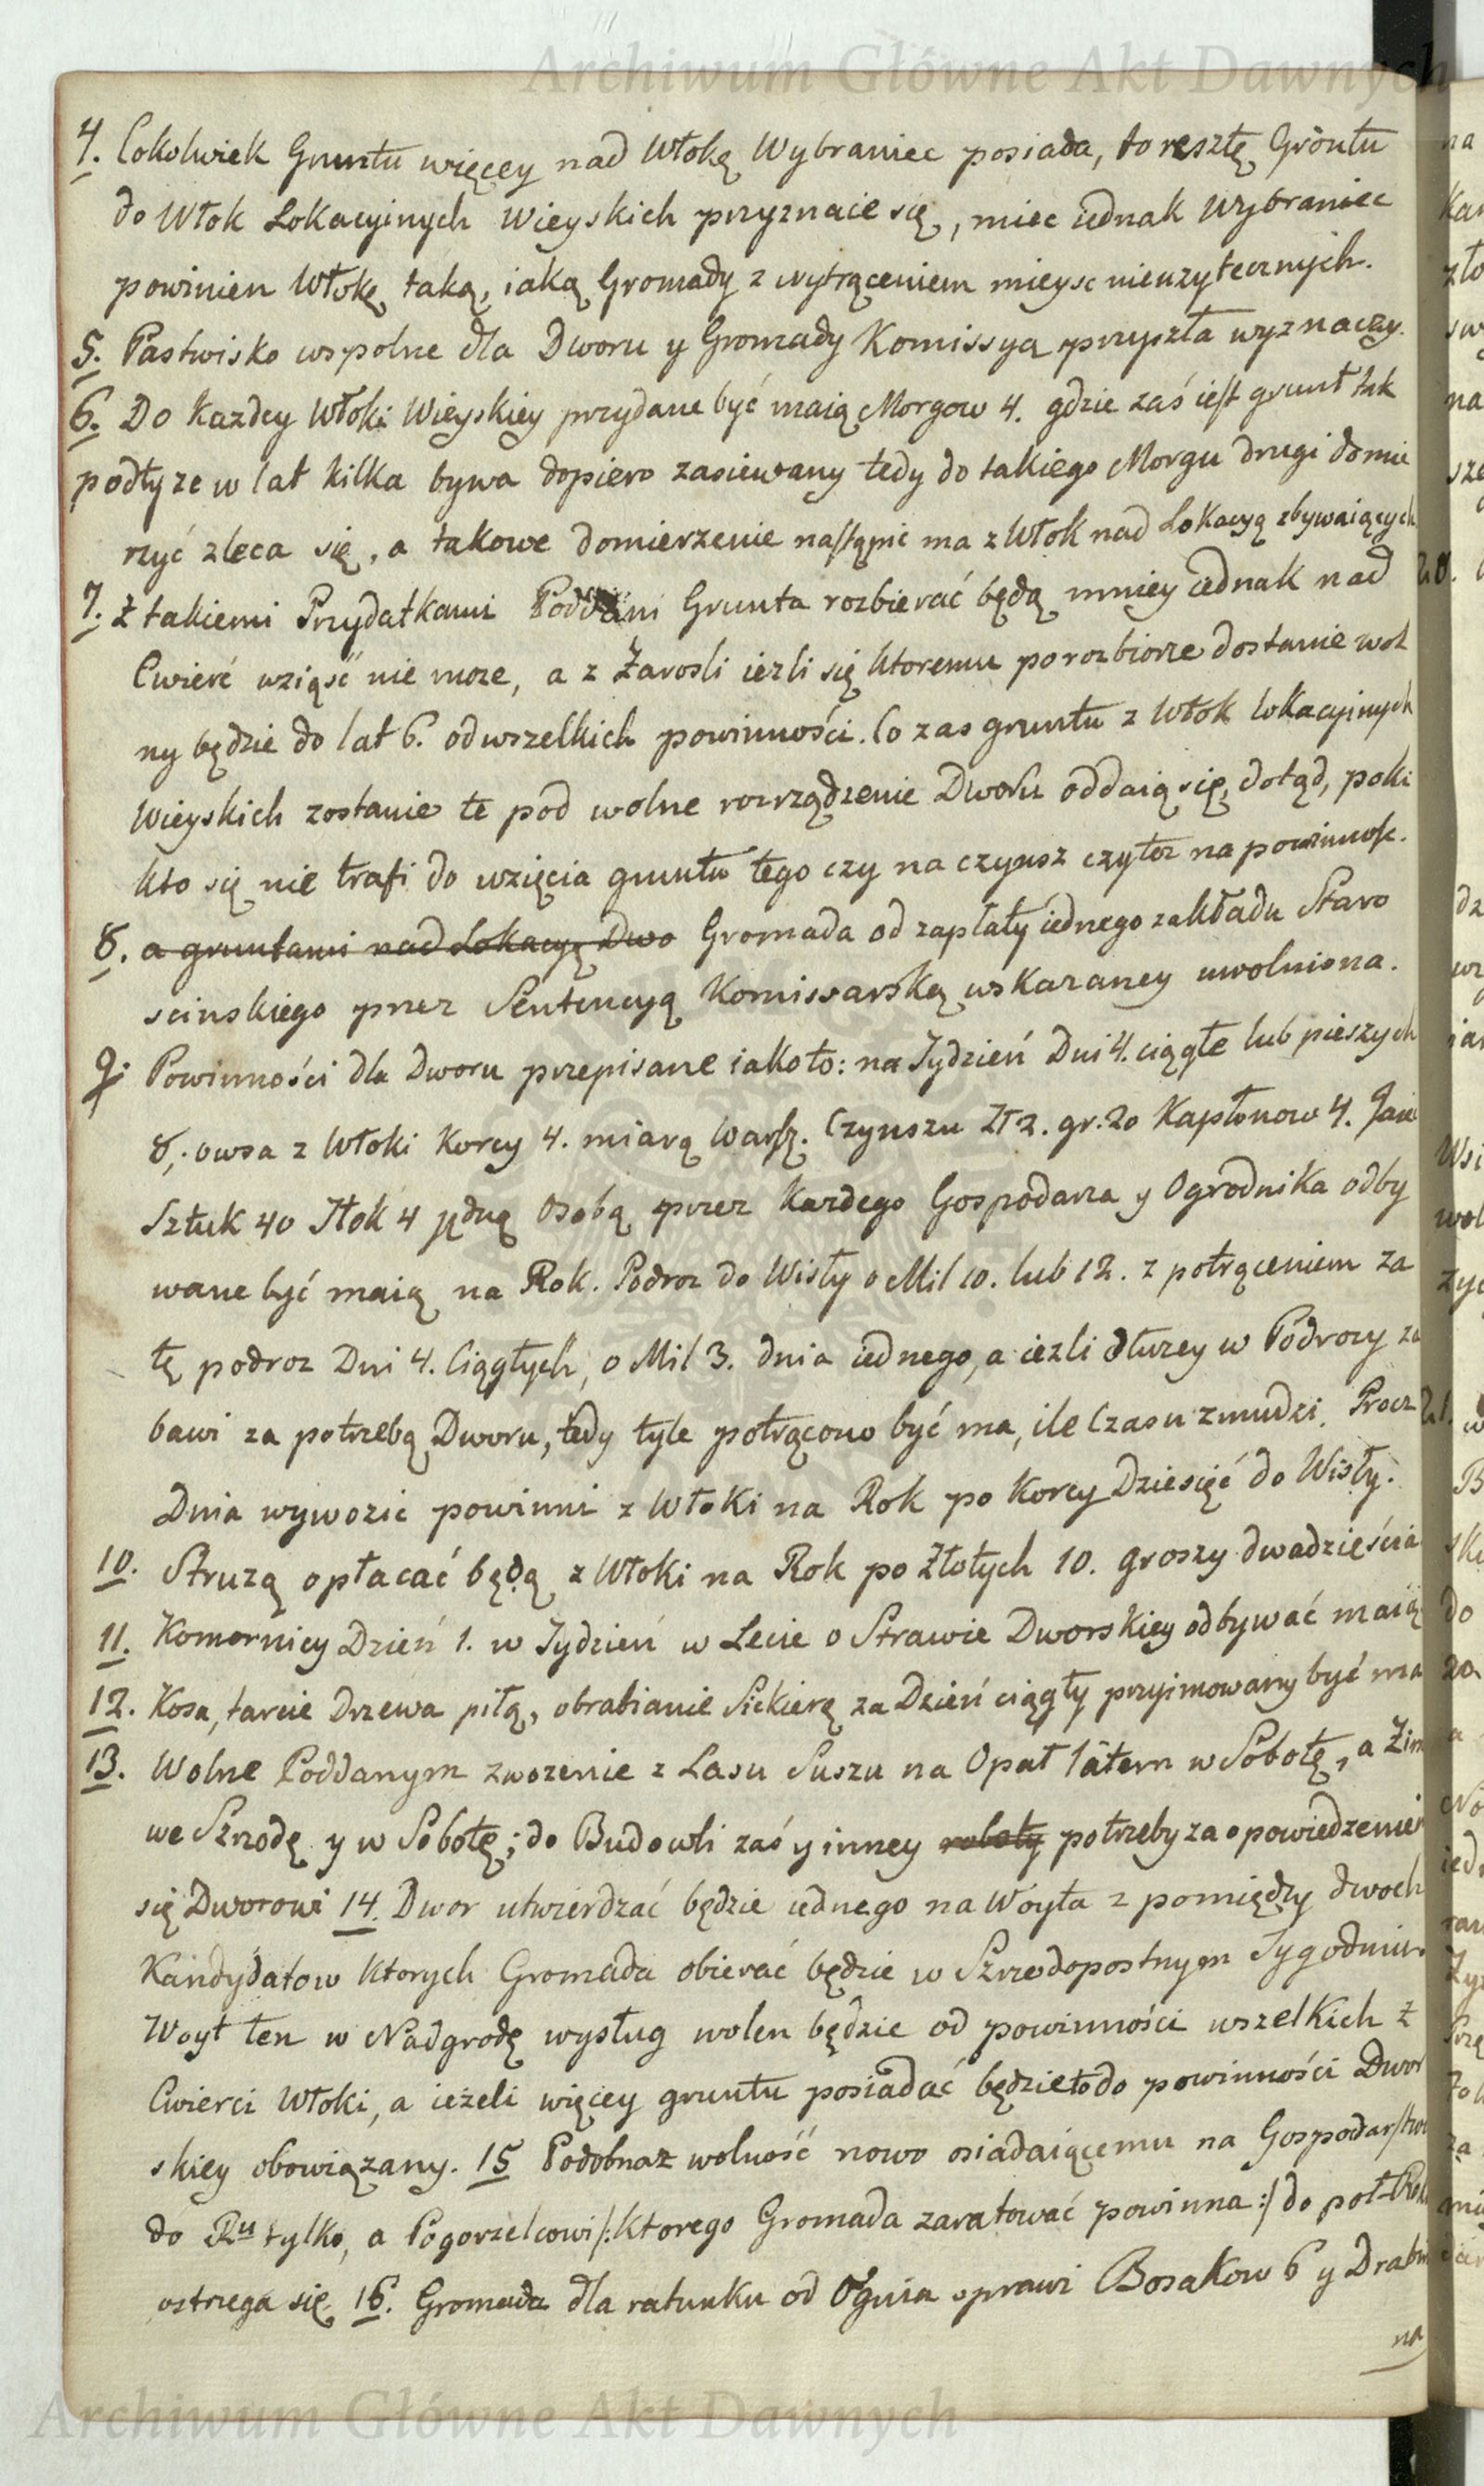 Archiwum Główne Akt Dawnych
4. Cokolwiek Gruntu więcey nad Włokę Wybraniec posiada, to resztę Gröntu
do Włok Lokacyinych Wieyskich przyznaie się, miec iednak Wybraniec
powinien Włokę taką, iaką Gromady z wytrąceniem mieysc nieuzytecznych.
5. Pastwisko wspolne dla Dworu y Gromady Komissya przyszła wyznaczy.
6. Do Kazdey Włoki Wieyskiey przydane być maią Morgow 4. gdzie zaś iest grunt tak
podły ze w lat kilka bywa dopiero zasiewany tedy do takiego Morgu drugi domie
rzyć zleca się, a takowe domierzenie nastąpic ma z Włok nad Lokacyą zbywaiących
7. Z takiemi Przydatkami Poddani Grunta rozbierać będą mniey iednak nad
Cwierć wziąść nie moze, a z Zarosli iezli się ktoremu po rozbiorze dostanie wol
ny będzie do lat 6. od wszelkich powinności. Co zas gruntu z Włok lokacyinych
Wieyskich zostanie te pod wolne rozrządzenie Dworu oddaią się, dotąd, poki
kto się nie trafi do wzięcia gruntu tego czy na czynsz czyłoz na powinność.
8. a gruntami nad Lokacyę Dwo Gromada od zapłaty iednego zakładu Staro
scinskiego przez Sentencyą Komissarską wskazaney uwolniona.
9. Powinności dla Dworu przepisane iakoto: na Tydzień Dni 4. ciągłe lub pieszych
8,. owsa z Włoki Korcy 4. miarą Warsz. Czynszu Zł 2. gr. 20 Kapłonow 4. Jaie
Sztuk 40 Tłok 4 jędną Osobą przez Kazdego Gospodarza y Ogrodnika odby
wane być maią na Rok. Podroz do Wisły o Mil 10. lub 12. z potrąceniem za
tę podroz Dni 4. Ciągłych, o Mil 3. dnia iednego, a iezli dłuzey w Podrozy za
bawi za potrzebą Dworu, tedy tyle potrącono być ma, ile Czasu zmudzi. Procz
Dnia wywozic powinni z Włoki na Rok po Korcy Dziesięć do Wisły.
10. Struzą opłacać będą z Włoki na Rok po Złotych 10. groszy dwadzieścia
11. Komornicy Dzień 1. w Tydzień w Lecie o Strawie Dworskiey odbywać maią
12. Kosa, tarcie Drzewa piłą, obrabianie Siekierą za Dzień ciągły przyimowany być ma
13. Wolne Poddanym zwozenie z Lasu Suszu na Opał latem w Sobotę, a Zim
we Szrodę y w Sobotę; do Budowli zaś y inney roboty potrzeby za opowiedzeniem
się Dworowi 14. Dwor utwierdzać będzie iednego na Woyta z pomiędzy dwoch
Kandydatow Ktorych Gromada obierać będzie w Szrzodopostnym Tygodniu.
Woyt ten w Nadgrodę wysług wolen będzie od powinności wszelkich z
Cwierci Włoki, a ieżeli więcey gruntu posiadać będzie to do powinności Dwor
skiey obowiązany. 15 Podobnaz wolność nowo osiadaiącemu na Gospodarstwo
do Ru tylko, a Pogorzelcowi /: Ktorego Gromada zaratować powinna :/ do poł Roku
ostrzega się. 16. Gromada dla ratunku od Ognia sprawi Bosakow 6 y Drabin
na
Archiwum Główne Akt Dawnych